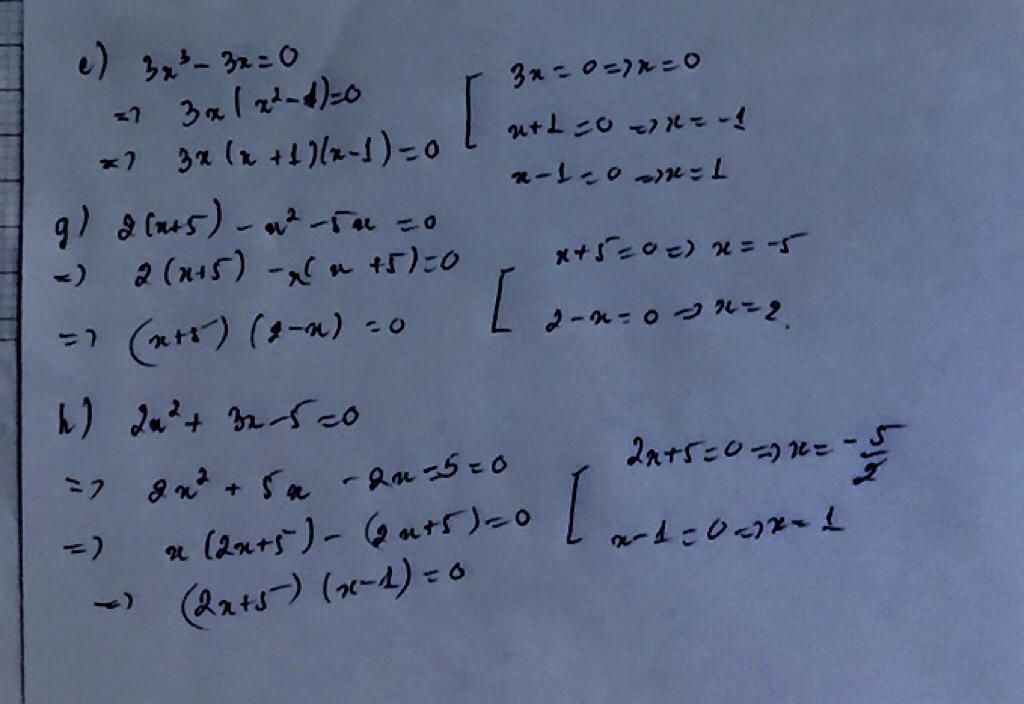 e) 3x³ - 3x = 0
=> 3x(x² - 1) = 0
=> 3x(x + 1)(x - 1) = 0
[ 3x = 0 => x = 0
x + 1 = 0 => x = -1
x - 1 = 0 => x = 1
g) 2(x+5) - x² - 5x = 0
=> 2(x+5) - x(x + 5) = 0
=> (x+5)(2-x) = 0
[ x+5 = 0 => x = -5
2 - x = 0 => x = 2.
h) 2x² + 3x - 5 = 0
=> 2x² + 5x - 2x - 5 = 0
=> x(2x+5) - (2x+5) = 0
=> (2x+5)(x-1) = 0
[ 2x+5 = 0 => x = -5/2
x - 1 = 0 => x = 1